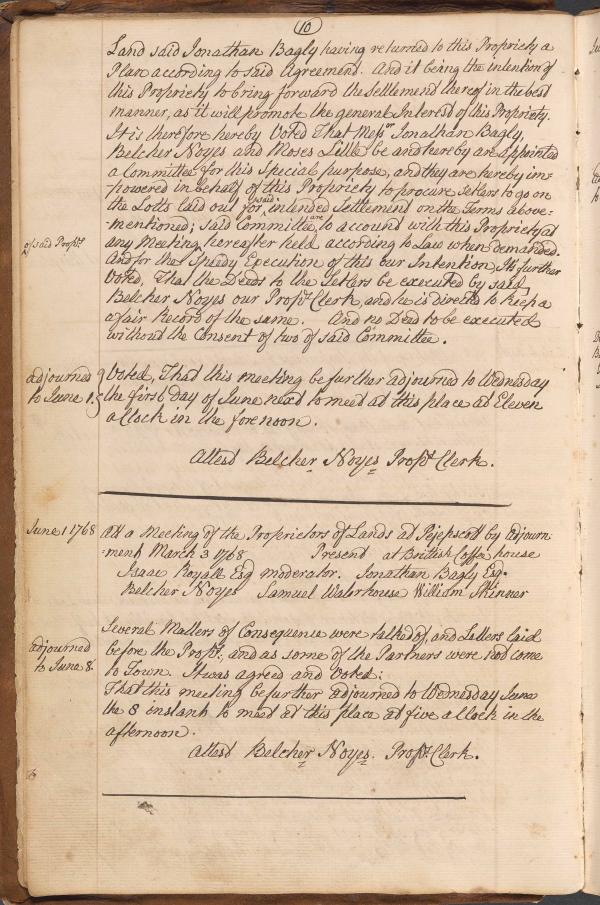 10
Land said Jonathan Bagly having returned to this Propriety a
Plan according to said Agreement. And it being the intention of
this Propriety to bring forward the Settlement thereof in the best
manner, as it will promote the general Interest of this Propriety.
It is therefore hereby Voted That Messrs Jonathan Bagly,
Belcher Noyes and Moses Little be and hereby are appointed
a Committee for this Special purpose, and they are hereby im-
-powered in behalf of this Propriety to procure Setlers to go on
the Lotts laid out for said intended Settlement on the Terms above-
-mentioned; said Committee are to account with this Propriety at
of said Proprs
any Meeting hereafter held according to Law when demanded.
And for the Speedy Execution of this our Intention, It's further
Voted, That the Deeds to the Setlers be executed by said
Belcher Noyes our Proprs Clerk, and he is directed to keep a
a fair Record of the same. And no Deed to be executed
without the Consent of two of said Committee.
adjourned
to June 1.
Voted, That this meeting be further adjourned to Wednesday
the first day of June next to meet at this place at Eleven
a Clock in the forenoon.
Attest Belcher Noyes Proprs Clerk.
June 1 1768
Att a Meeting of the Proprietors of Lands at Pejepscott by adjourn-
-ment March 3 1768 Present at British Coffee house
Isaac Royall Esq moderator. Jonathan Bagly Esq.
Belcher Noyes Samuel Waterhouse William Skinner
Several Matters of Consequence were talked of, and Letters laid
adjourned
to June 8.
before the Proprs; and as some of the Partners were not come
to Town. It was agreed and Voted;
That this meeting be further adjourned to Wednesday June
the 8 instant to meet at this place at five a Clock in the
afternoon.
Attest Belcher Noyes. Proprs Clerk.